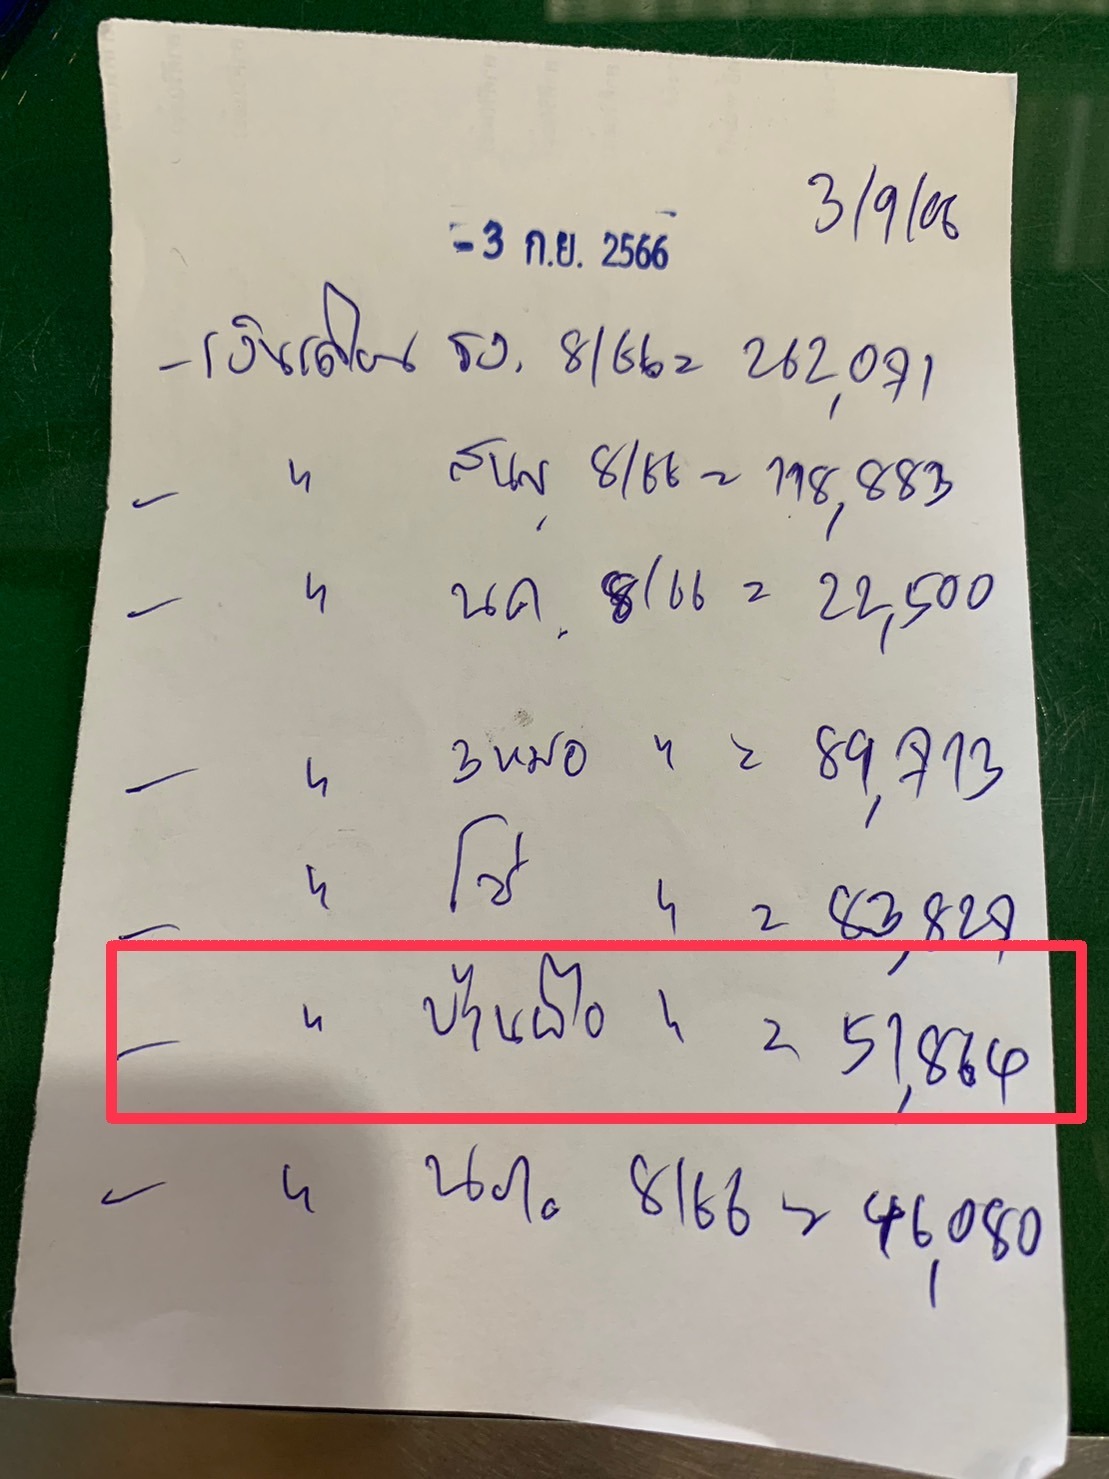 3/9/66
-3 ก.ย. 2566
- เงินเดือน รง. 8/66 = 262,071
- " 8/66 = 118,883
- " นค. 8/66 = 22,500
- " 3หมอ " = 89,713
- " โช " = 83,827
- " บ้านผือ " = 51,864
- " 8/66 = 46,080